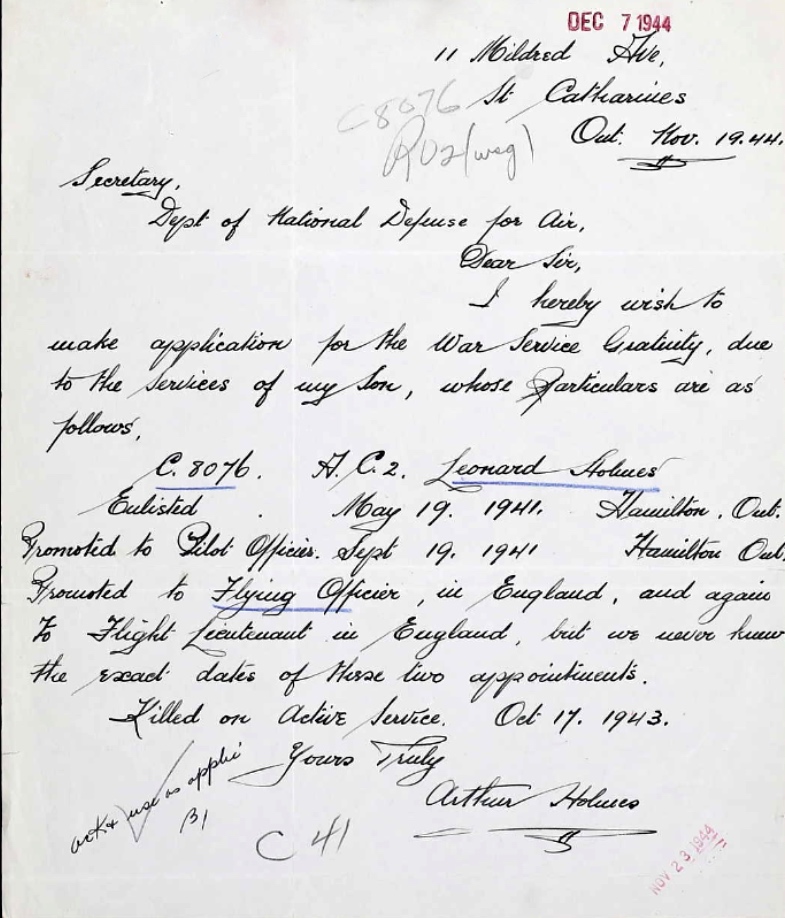 DEC 7 1944
11 Mildred Ave,
C8076 St Catharines
Ont. Nov. 19.44.
Secretary,
Dept of National Defense for Air,
Dear Sir,
I hereby wish to
make application for the War Service Gratuity, due
to the services of my Son, whose Particulars are as
follows,
C. 8076. A.C.2. Leonard Holmes
Enlisted . May 19. 1941. Hamilton, Ont.
Promoted to Pilot Officier. Sept 19. 1941 Hamilton Ont.
Promoted to Flying Officier, in England, and again
To Flight Lieutenant in England, but we never knew
the exact dates of these two appointments.
Killed on Active Service. Oct 17. 1943.
Yours Truly
Arthur Holmes
ack & use as applic
B1
C 41
NOV 23 1944